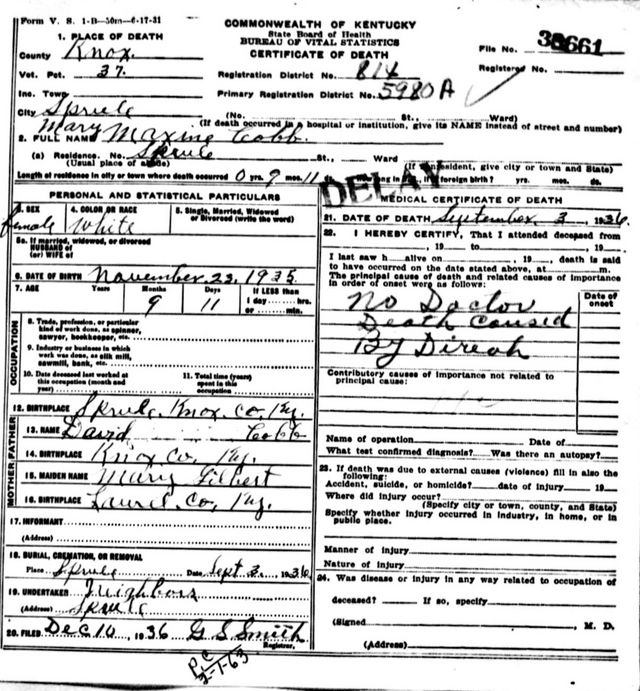 Form V. S. 1-B—50m—6-17-31
COMMONWEALTH OF KENTUCKY
State Board of Health
BUREAU OF VITAL STATISTICS
CERTIFICATE OF DEATH
1. PLACE OF DEATH
County Knox
Vot. Pct. 37
Inc. Town
City Sprule
File No.
Registered No.
Registration District No. 814
Primary Registration District No. 5980A
(No. St., Ward)
(If death occurred in a hospital or institution, give its NAME instead of street and number)
2. FULL NAME Mary Maxine Cobb
(a) Residence. No. Sprule St., Ward
(Usual place of abode) (If nonresident, give city or town and State)
Length of residence in city or town where death occurred 0 yrs. 9 mos. 11 How long in U.S., if of foreign birth? yrs. mos. ds.
DELAY
PERSONAL AND STATISTICAL PARTICULARS
3. SEX female
4. COLOR OR RACE White
5. Single, Married, Widowed or Divorced (write the word)
5a. If married, widowed, or divorced
HUSBAND of
(or) WIFE of
6. DATE OF BIRTH November 23, 1935
7. AGE Years Months 9 Days 11 If LESS than 1 day hrs. or min.
OCCUPATION
8. Trade, profession, or particular
kind of work done, as spinner,
sawyer, bookkeeper, etc.
9. Industry or business in which
work was done, as silk mill,
sawmill, bank, etc.
10. Date deceased last worked at
this occupation (month and
year)
11. Total time (years)
spent in this
occupation
12. BIRTHPLACE Sprule, Knox Co, Ky.
MOTHER-FATHER
13. NAME David Cobb
14. BIRTHPLACE Knox Co, Ky.
15. MAIDEN NAME Mary Gilbert
16. BIRTHPLACE Laurel Co, Ky.
17. INFORMANT
(Address)
18. BURIAL, CREMATION, OR REMOVAL
Place Sprule Date Sept 3, 1936
19. UNDERTAKER Neighbors
(Address) Sprule
20. FILED Dec 10, 1936 G S Smith
Registrar.
PC
2-1-63
MEDICAL CERTIFICATE OF DEATH
21. DATE OF DEATH September 3, 1936
22. I HEREBY CERTIFY, That I attended deceased from
, 19 to , 19
I last saw h alive on , 19 , death is said
to have occurred on the date stated above, at m.
The principal cause of death and related causes of importance
in order of onset were as follows:
Date of onset
No Doctor
Death Caused
By Direah
Contributory causes of importance not related to
principal cause:
Name of operation Date of
What test confirmed diagnosis? Was there an autopsy?
23. If death was due to external causes (violence) fill in also the
following:
Accident, suicide, or homicide? date of injury 19
Where did injury occur?
(Specify city or town, county, and State)
Specify whether injury occurred in industry, in home, or in
public place.
Manner of injury
Nature of injury
24. Was disease or injury in any way related to occupation of
deceased? If so, specify
(Signed , M. D.
(Address)